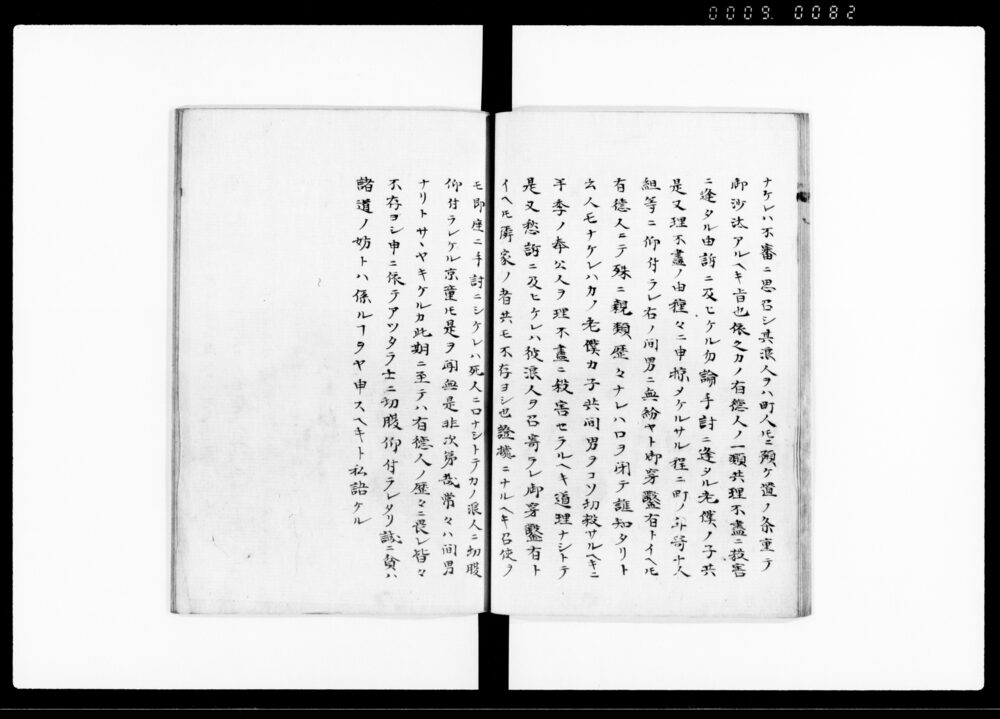 0009. 0082
ナケレハ不審ニ思召シ其浪人ヲハ町人𪜈ニ預ケ置ノ条重テ
御沙汰アルヘキ旨也依之カノ有徳人ノ一類共理不盡ニ殺害
ニ逢タル由訴ニ及ヒケル勿論手討ニ逢タル老僕ノ子共
是又理不盡ノ由種々ニ申掠メケルサル程ニ町ノ年寄十人
組等ニ仰付ラレ右ノ間男ニ無紛ヤト御穿鑿有トイヘ𪜈
有徳人ニテ殊ニ親類歴々ナレハ口ヲ閉テ誰知タリト
云人モナケレハカノ老僕カ子共間男ヲコソ切殺サルヘキニ
半季ノ奉公人ヲ理不盡ニ殺害セラルヘキ道理ナシトテ
是又愁訴ニ及ヒケレハ彼浪人ヲ召寄ラレ御穿鑿有ト
イヘ𪜈隣家ノ者共モ不存ヨシ也證據ニナルヘキ召使ヲ
モ即座ニ手討ニシケレハ死人ニ口ナシトテカノ浪人ニ切腹
仰付ラレケル京童𪜈是ヲ聞無是非次第哉常々ハ間男
ナリトサヽヤキケルカ此期ニ至テハ有徳人ノ歴々ニ畏レ皆々
不存ヨシ申ニ依テアツタラ士ニ切腹仰付ラレタリ誠ニ貧ハ
諸道ノ妨トハ係ルヿヲヤ申スヘキト私語ケル